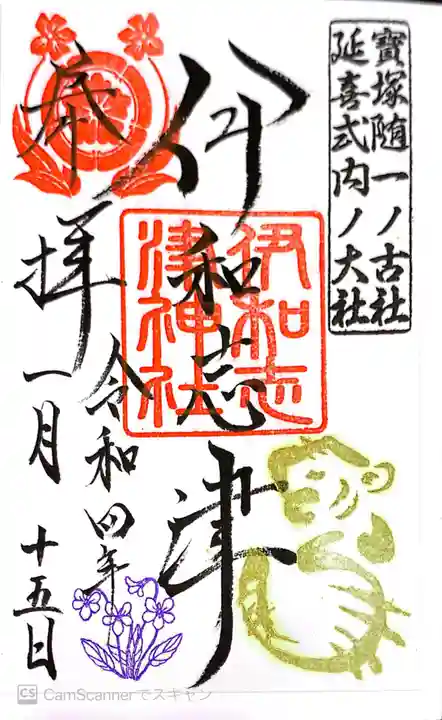 寳塚随一ノ古社
延喜式内ノ大社
伊和志津
伊和志
津神社
奉拝
令和四年
一月十五日
CS CamScannerでスキャン